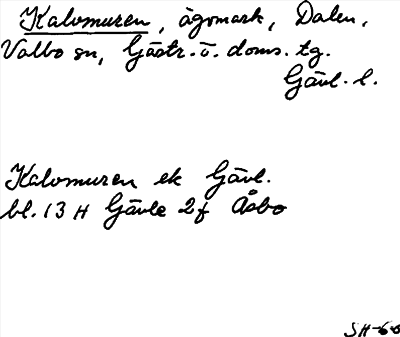 Kalvmuren, ägomark, Dalen,
Valbo sn, Gästr. ö. doms. tg.
Gävl. l.
Kalvmuren ek Gävl.
bl. 13 H Gävle 2f Åsbo